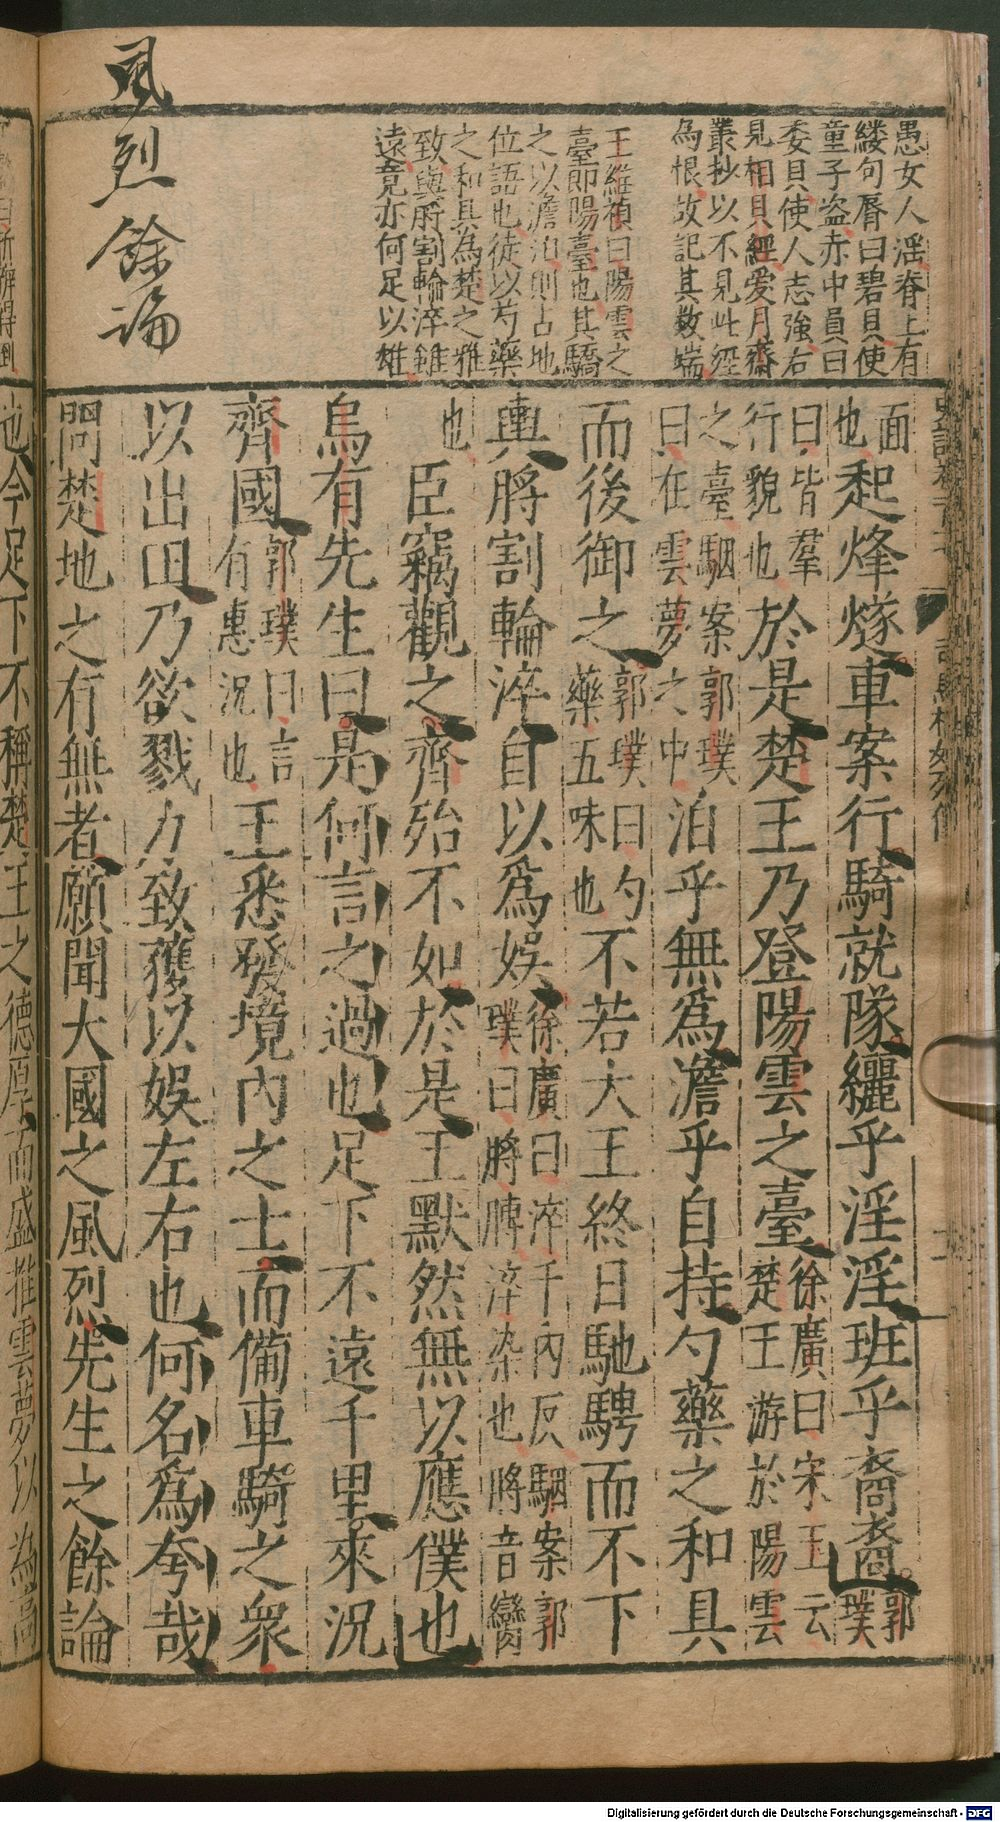 風烈餘論
愚女人淫脊上有
縷句脣曰碧貝使
童子盗赤中員曰
委貝使人志強右
見相貝經愛月齋
叢抄以不見此經
為根故記其数端
王維禎曰陽雲之
臺即陽臺也其驕
之以澹泊則占地
位語也徒以芍藥
之和具為楚之雅
致與脟割輪淬雖
遠竟亦何足以雄
面
也起烽燧車案行騎就隊纚乎淫淫班乎裔裔郭璞
曰皆羣
行貌也於是楚王乃登陽雲之臺徐廣曰宋玉云
楚王游於陽雲
之臺駰案郭璞
曰在雲夢之中泊乎無爲澹乎自持勺藥之和具
而後御之郭璞曰勺
藥五味也不若大王終日馳騁而不下
輿脟割輪淬自以爲娛徐廣曰淬千內反駰案郭
璞曰脟膊淬染也脟音臠
也臣竊觀之齊殆不如於是王默然無以應僕也
烏有先生曰是何言之過也足下不遠千里來況
齊國郭璞曰言
有惠況也王悉發境內之士而備車騎之衆
以出田乃欲戮力致獲以娛左右也何名爲夸哉
問楚地之有無者願聞大國之風烈先生之餘論
也今足下不稱楚王之德厚而盛推雲夢以為高
Digitalisierung gefördert durch die Deutsche Forschungsgemeinschaft - DFG